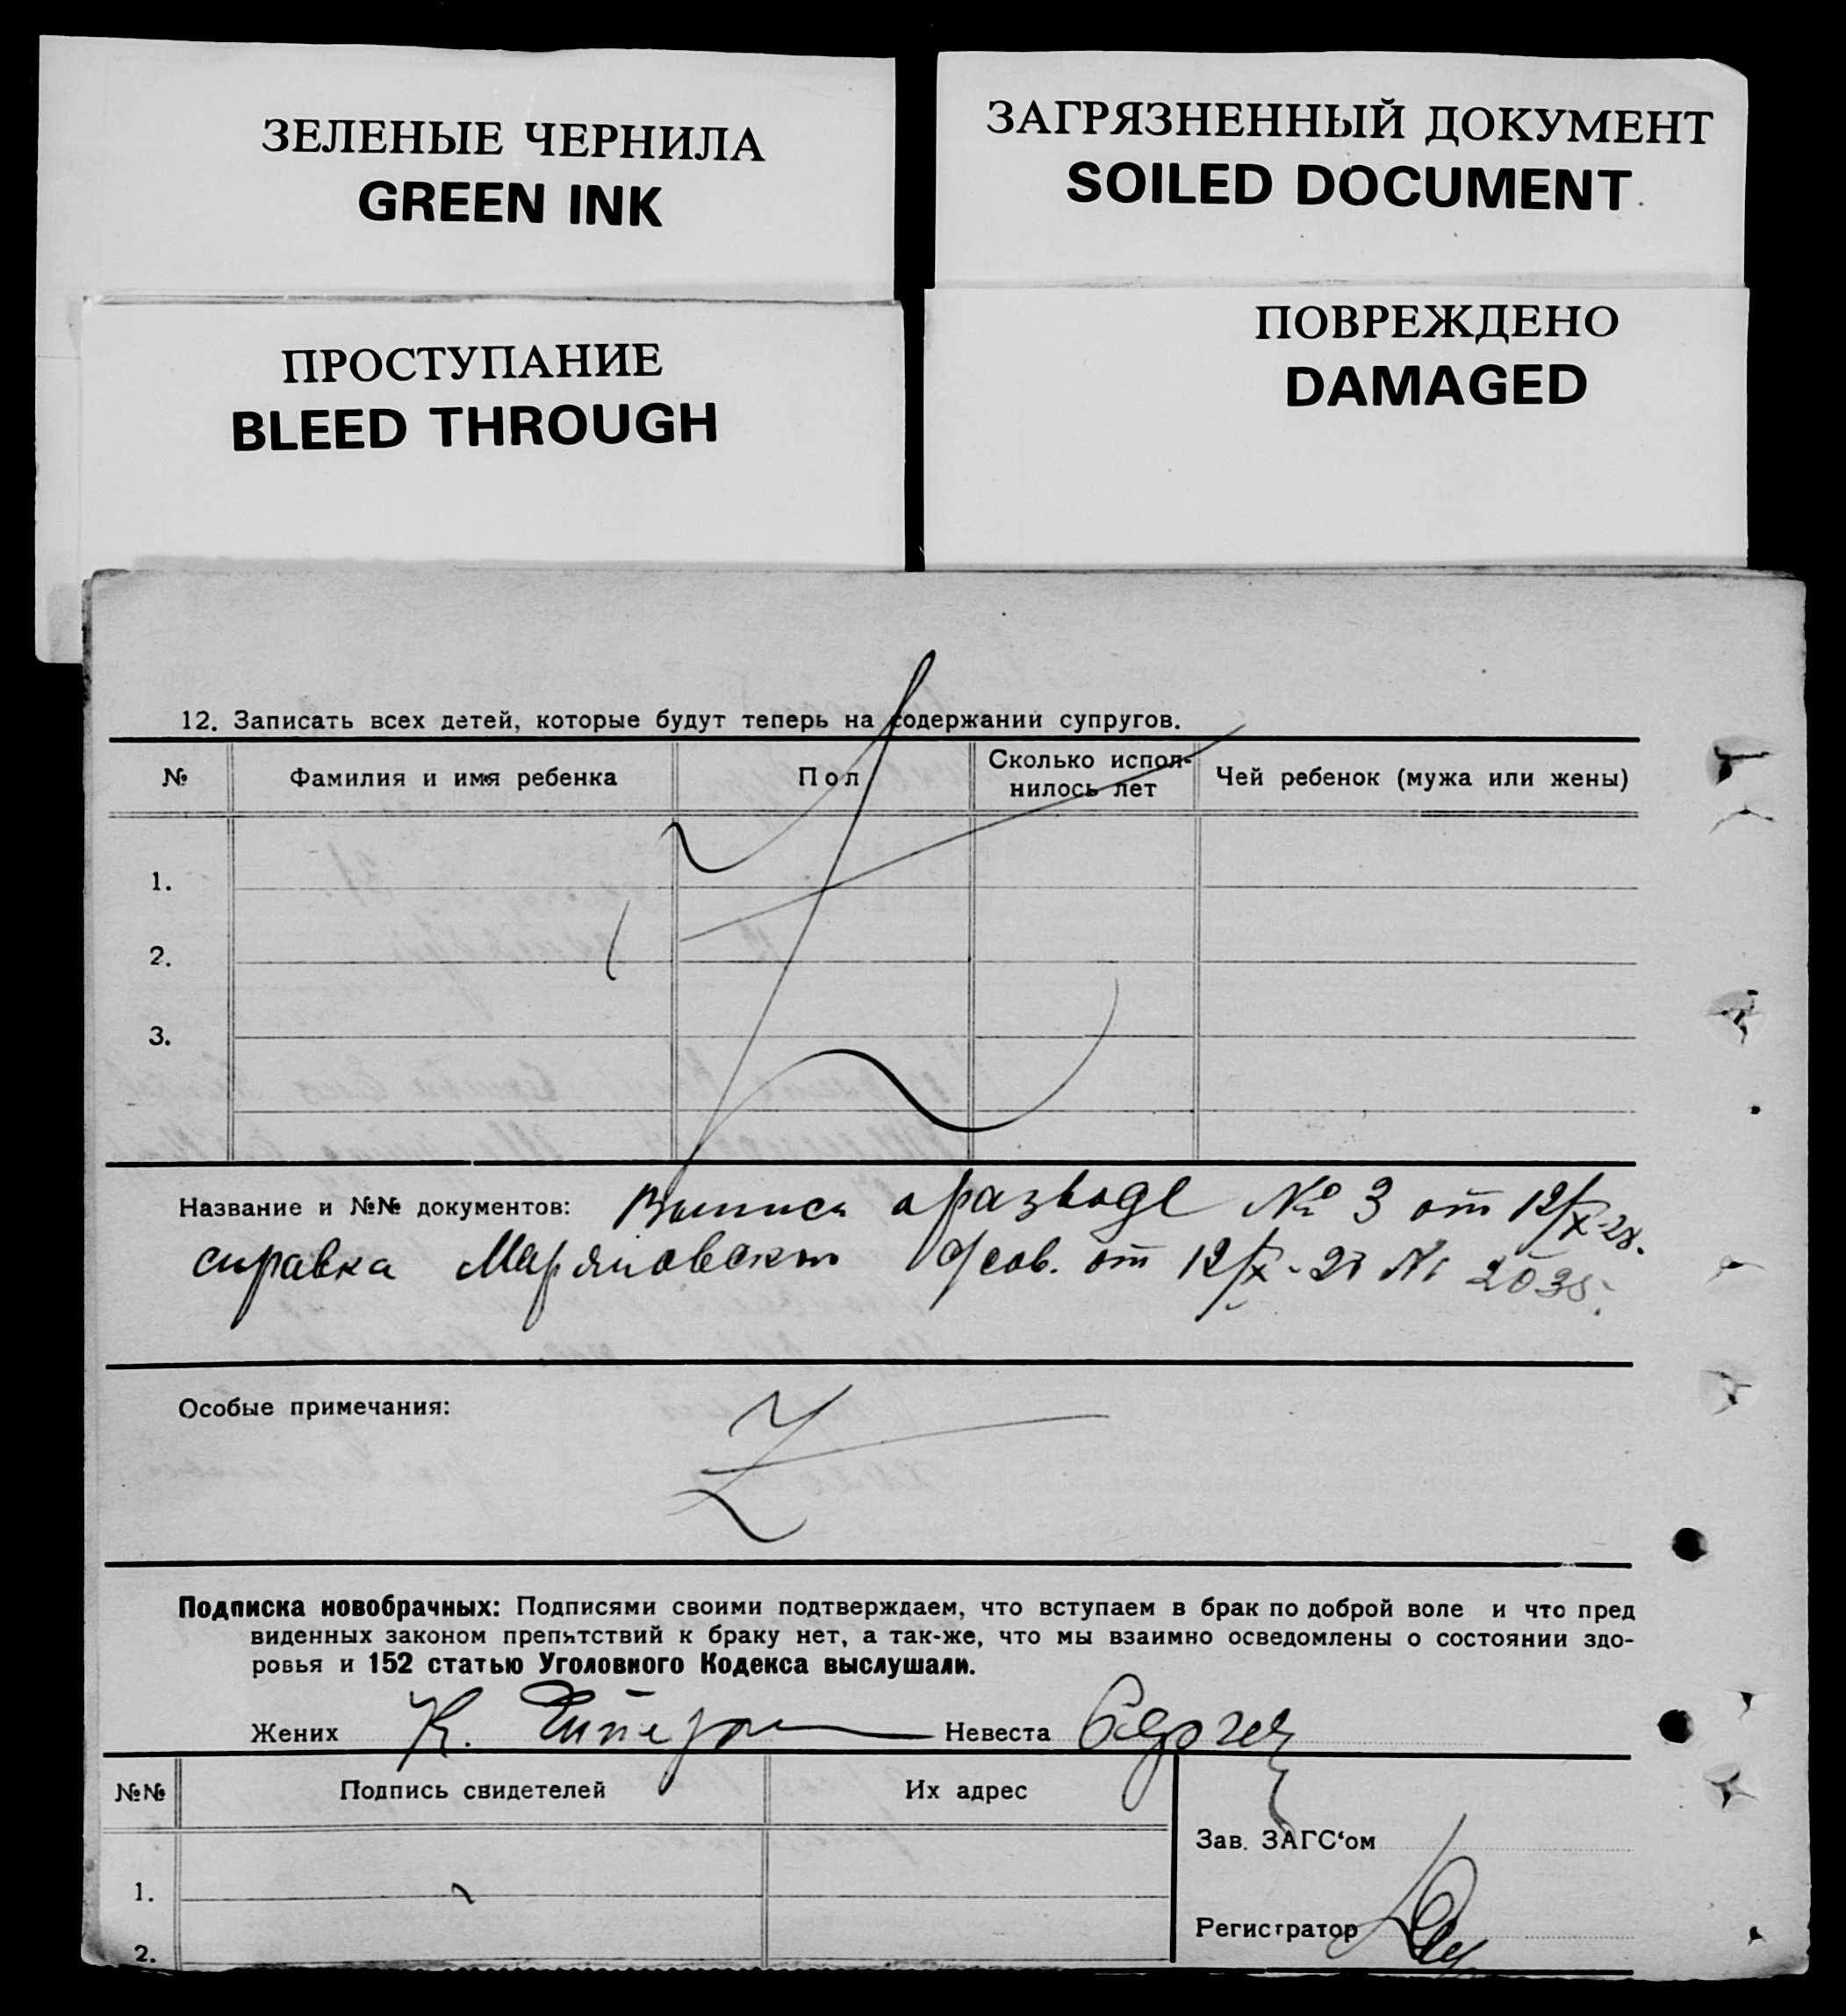 ЗЕЛЕНЫЕ ЧЕРНИЛА
GREEN INK
ЗАГРЯЗНЕННЫЙ ДОКУМЕНТ
SOILED DOCUMENT
ПРОСТУПАНИЕ
BLEED THROUGH
ПОВРЕЖДЕНО
DAMAGED
12. Записать всех детей, которые будут теперь на содержании супругов.
№ Фамилия и имя ребенка Пол Сколько испол- Чей ребенок (мужа или жены)
нилось лет
1.
2.
3.
Название и №№ документов: Выпись о разводе № 3 от 12/X-28.
справка от 12/X-28 № 2035.
Особые примечания:
Подписка новобрачных: Подписями своими подтверждаем, что вступаем в брак по доброй воле и что пред
виденных законом препятствий к браку нет, а так-же, что мы взаимно осведомлены о состоянии здо-
ровья и 152 статью Уголовного Кодекса выслушали.
Жених К. Невеста
№№ Подпись свидетелей Их адрес
Зав. ЗАГС‘ом
1.
Регистратор
2.